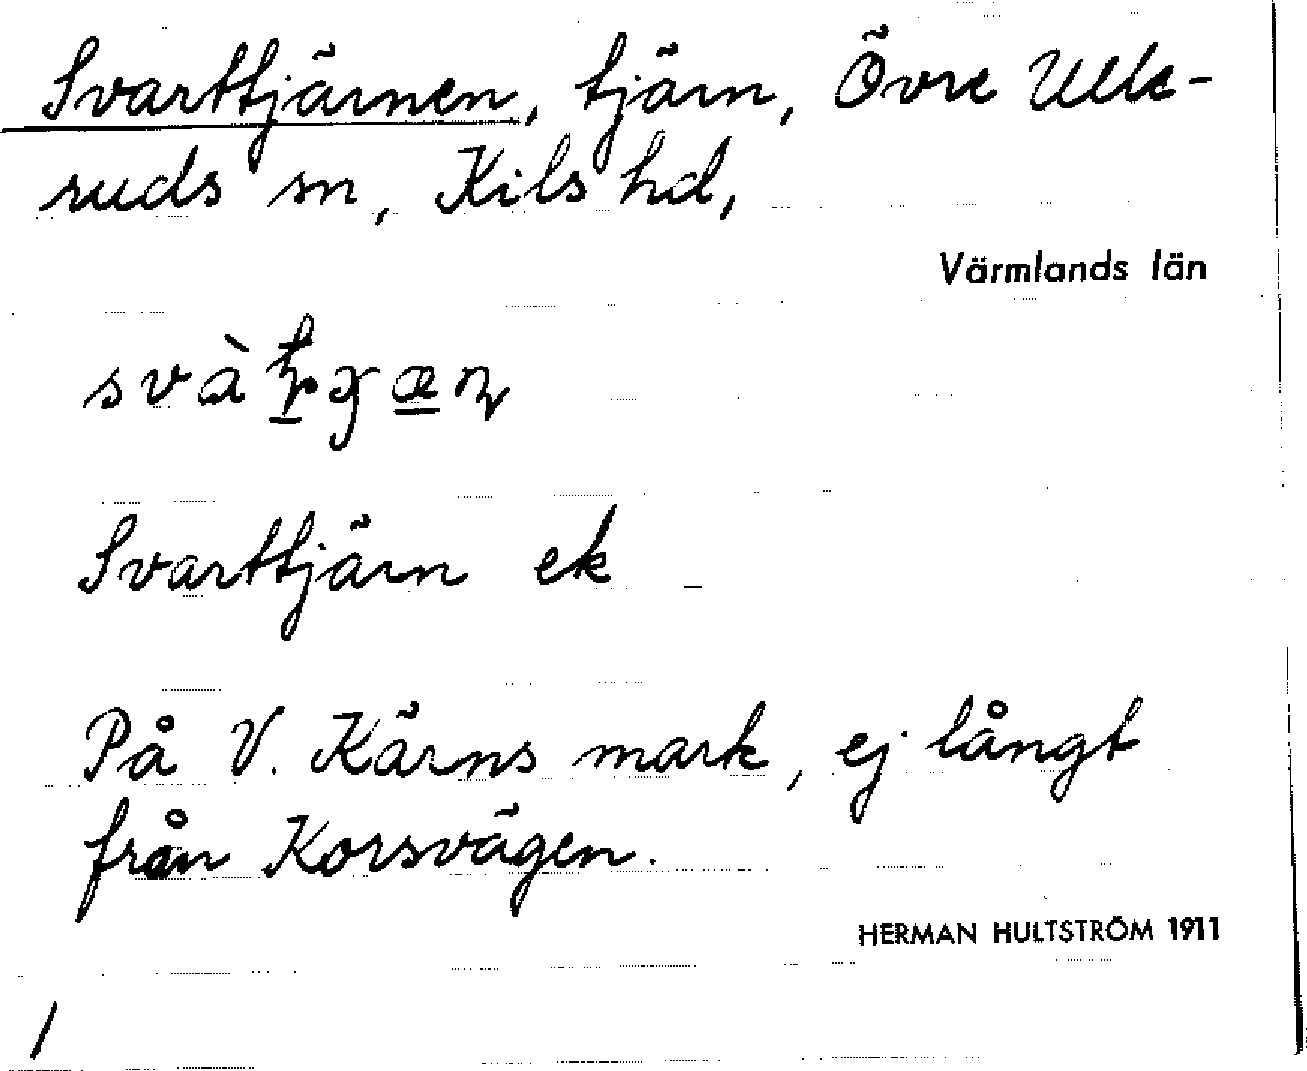 Svarttjärnen, tjärn, Övre Ulle-
ruds sn, Kils hd,
Värmlands län
Svarttjärn ek
På V. Kärns mark, ej långt
från Korsvägen.
HERMAN HULTSTRÖM 1911
/